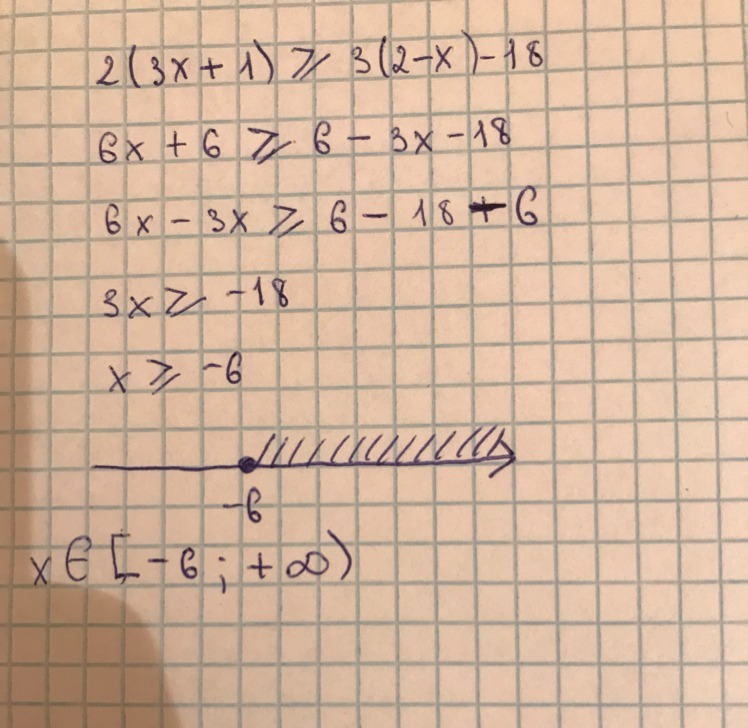 2(3x+1) ⩾ 3(2-x)-18
6x + 6 ⩾ 6 - 3x - 18
6x - 3x ⩾ 6 - 18 - 6
3x ⩾ -18
x ⩾ -6
-6
x ∈ [-6 ; +∞)